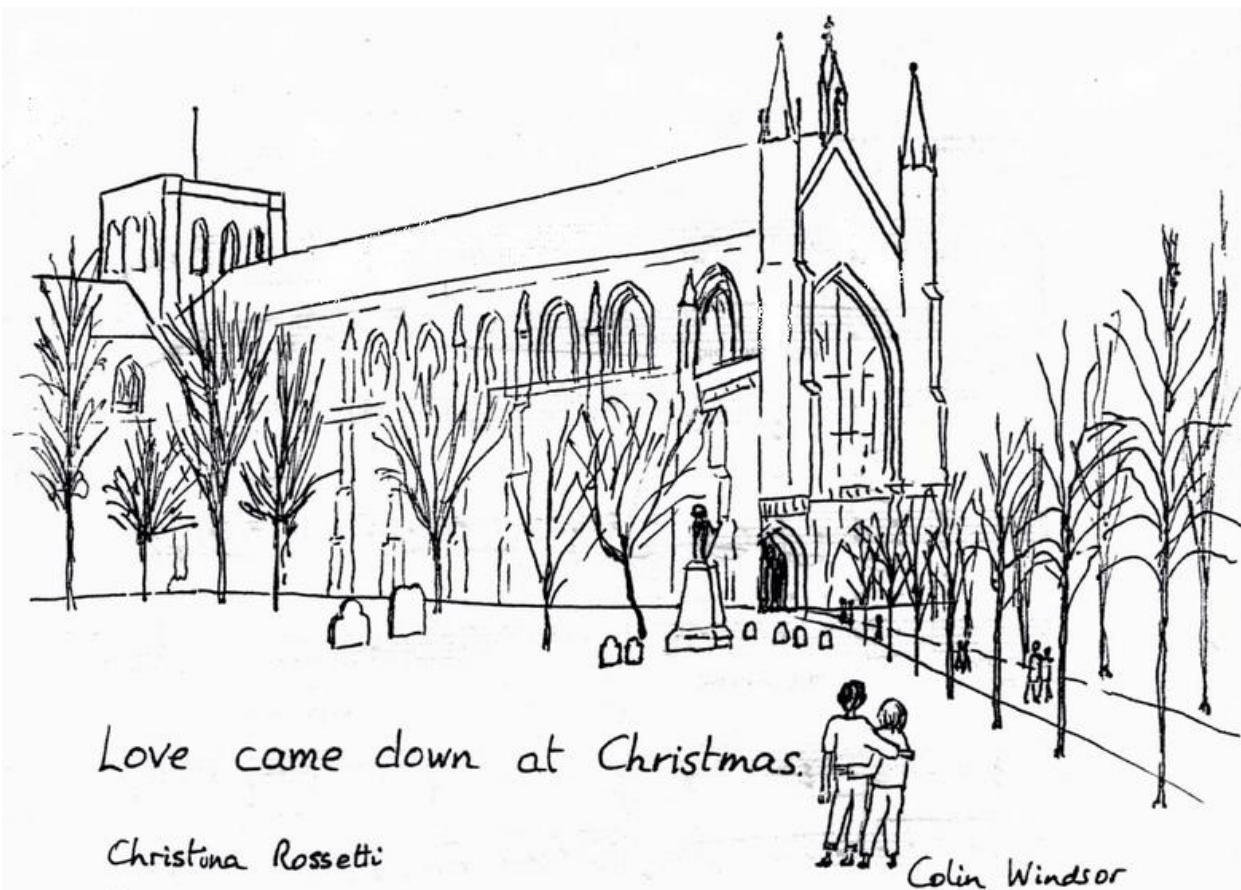 Love came down at Christmas.
Christina Rossetti
Colin Windsor